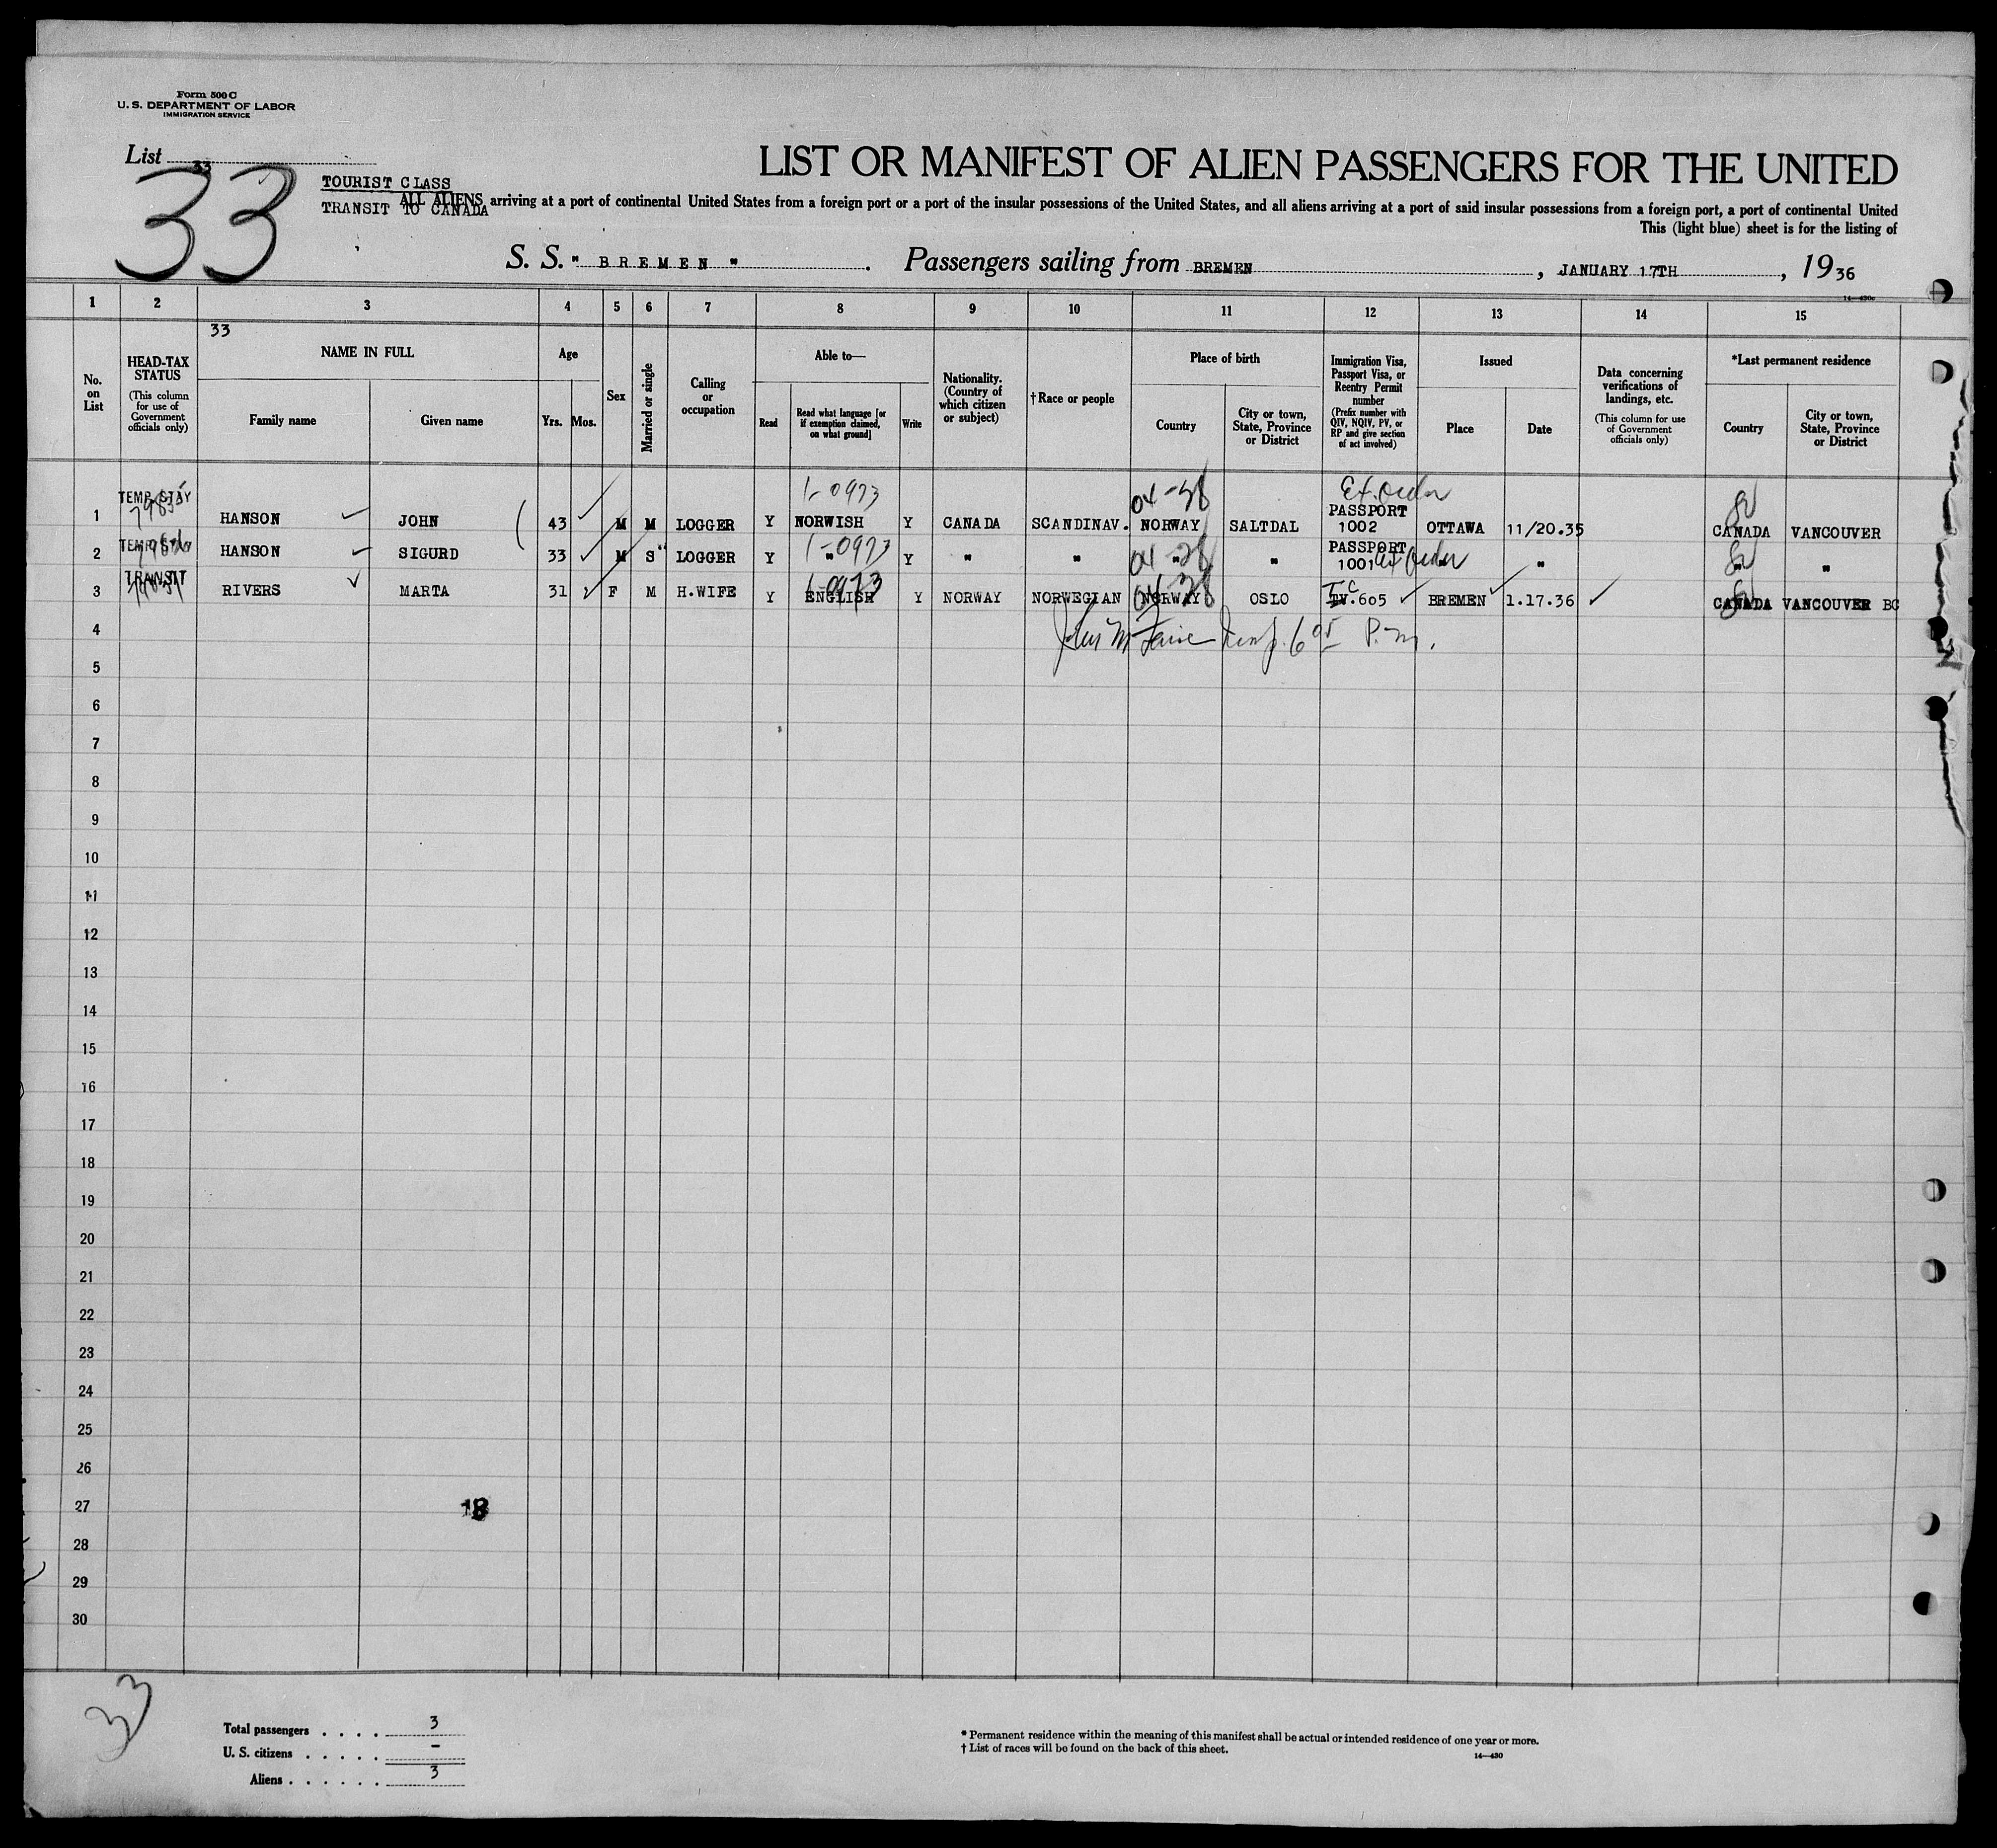 Form 500 C
U. S. DEPARTMENT OF LABOR
IMMIGRATION SERVICE
List 33
33
LIST OR MANIFEST OF ALIEN PASSENGERS FOR THE UNITED
TOURIST CLASS
TRANSIT TO CANADA
ALL ALIENS arriving at a port of continental United States from a foreign port or a port of the insular possessions of the United States, and all aliens arriving at a port of said insular possessions from a foreign port, a port of continental United
This (light blue) sheet is for the listing of
S. S. " BREMEN " . Passengers sailing from BREMEN , JANUARY 17TH , 1936
14—430c
1 2 3 4 5 6 7 8 9 10 11 12 13 14 15
33
No. on List
HEAD-TAX STATUS
(This column for use of Government officials only)
NAME IN FULL
Family name Given name
Age
Yrs. Mos.
Sex
Married or single
Calling or occupation
Able to—
Read
Read what language [or if exemption claimed, on what ground]
Write
Nationality. (Country of which citizen or subject)
†Race or people
Place of birth
Country
City or town, State, Province or District
Immigration Visa, Passport Visa, or Reentry Permit number
(Prefix number with QIV, NQIV, PV, or RP and give section of act involved)
Issued
Place Date
Data concerning verifications of landings, etc.
(This column for use of Government officials only)
*Last permanent residence
Country
City or town, State, Province or District
1-0973 04-38 Ex. Order
1 TEMP STAY HANSON JOHN 43 M M LOGGER Y NORWISH Y CANADA SCANDINAV. NORWAY SALTDAL PASSPORT 1002 OTTAWA 11/20.35 CANADA VANCOUVER
1-0973
2 HANSON SIGURD 33 M S " LOGGER Y " Y " " " " PASSPORT 1001 Ex Order " " " "
1-0973
3 TRANSIT RIVERS MARTA 31 F M H.WIFE Y ENGLISH Y NORWAY NORWEGIAN NORWAY OSLO TV.605 BREMEN 1.17.36 CANADA VANCOUVER BC
4 P.m.
5
6
7
8
9
10
11
12
13
14
15
16
17
18
19
20
21
22
23
24
25
26
27 18
28
29
30
33
Total passengers . . . . 3
U. S. citizens . . . . . -
Aliens . . . . . . 3
* Permanent residence within the meaning of this manifest shall be actual or intended residence of one year or more.
† List of races will be found on the back of this sheet.
14—430